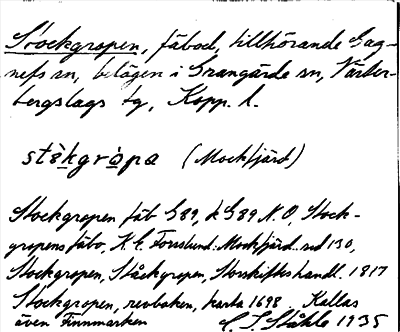 Stockgropen, fäbod, tillhörande Gag-
nefs sn, belägen i Grangärde sn, Väster-
bergslags tg, Kopp. l.
stòkgròpa (Mockfjärd)
Stockgropen fäb G89, k G89 N.O, Stock-
gropens fäbo, K. E. Forsslund: Mockfjärd sid 130,
Stockgropen, Ståckgropen, Storskifteshandl. 1817
Stockgropen, revboken, karta 1698. Kallas
även Finnmarken C. I. Ståhle 1935